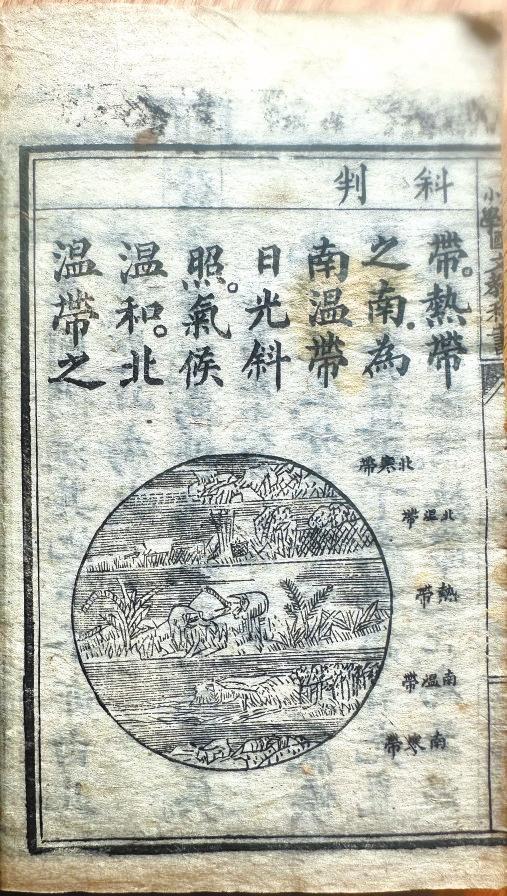 小學國文教科書
科判
帶。熱帶
之南。為
南温帶
日光斜
照。氣候
温和。北
温帶之
北寒帶
北温帶
熱帶
南温帶
南寒帶